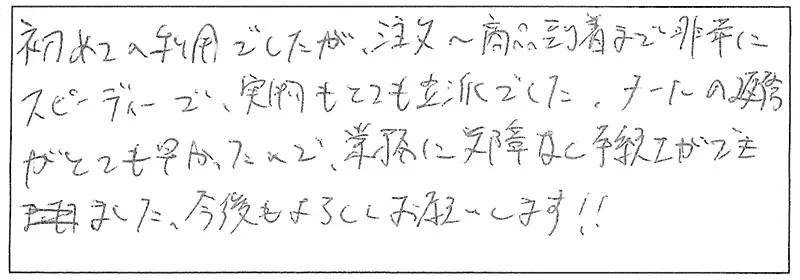 初めての利用でしたが、注文〜商品到着まで非常に
スピーディーで、実物もとても立派でした。メールの返答
がとても早かったので、業務に支障なく手続きができ
ました。今後もよろしくお願いします!!